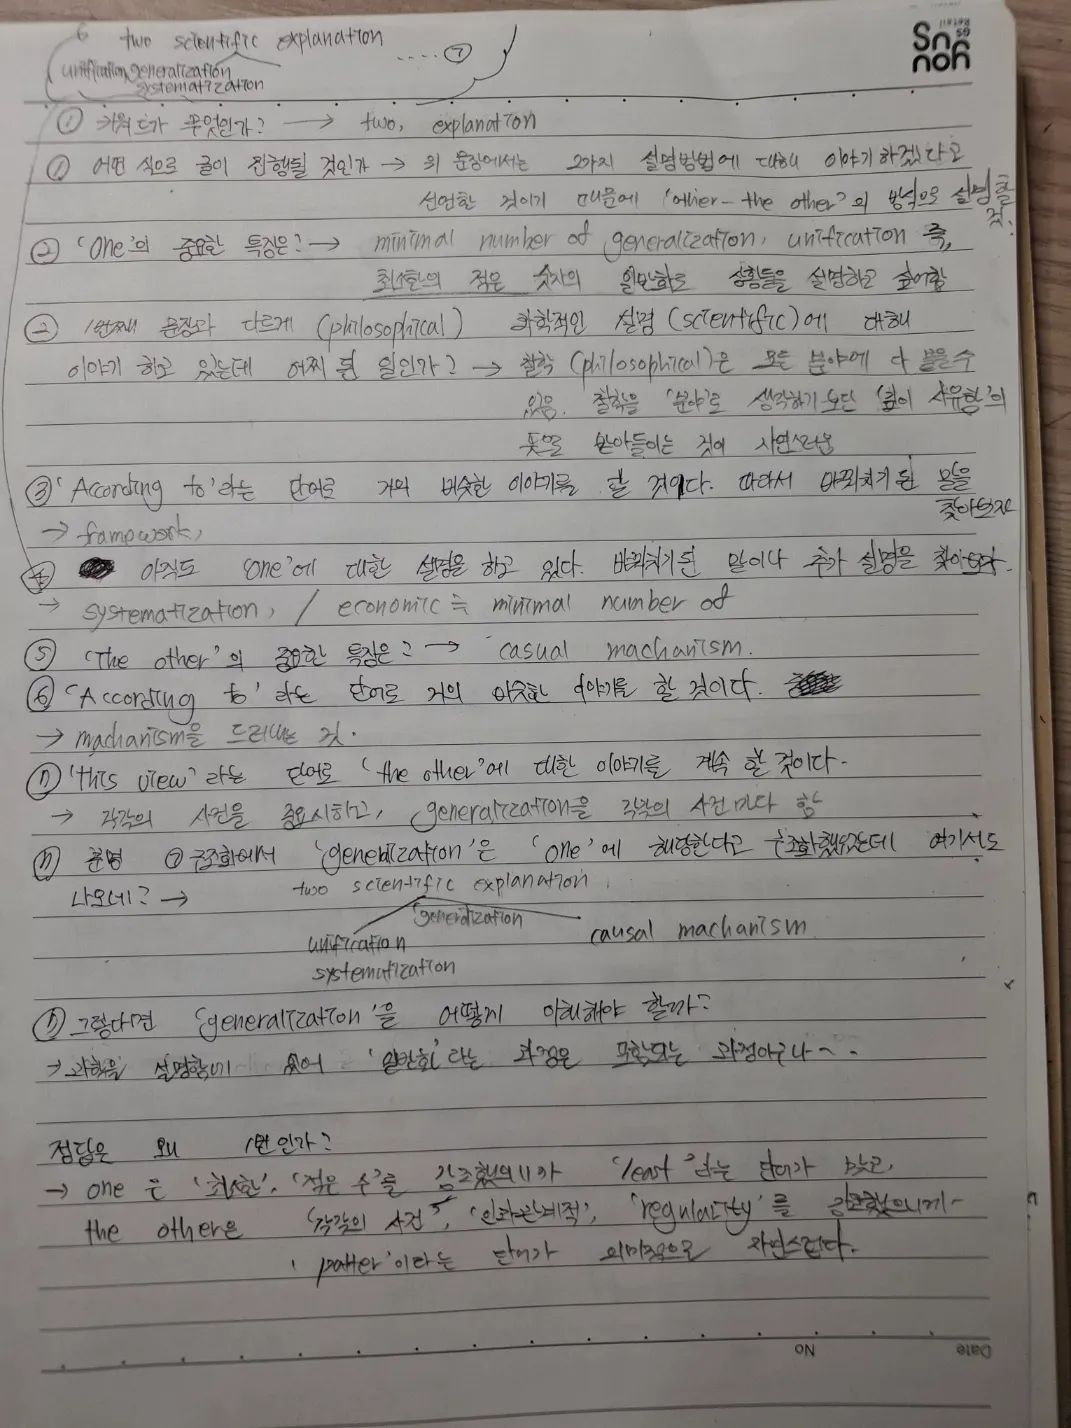 6 two scientific explanation
unification generalization ..... ⑦
systematization
YOU US
GS Retail
① 키워드가 무엇인가? → two, explanation
① 어떤 식으로 글이 진행될 것인가 → 위 문장에서는 2가지 설명방법에 대해 이야기하겠다고
선언한 것이기 때문에 'other-the other'의 방식으로 설명할 것.
② 'One'의 중요한 특징은? → minimal number of generalization, unification 즉,
최소한의 적은 숫자의 일반화로 상황들을 설명하고 싶어함
② 1번째 문장과 다르게 (philosophical) 과학적인 설명 (scientific)에 대해
이야기 하고 있는데 어찌 된 일인가? → 철학 (philosophical)은 모든 분야에 다 붙을 수
있음. 철학을 '분야'로 생각하기보단 '깊이 사유함'의
뜻으로 받아들이는 것이 자연스러움
③ 'According to'라는 단어로 거의 비슷한 이야기를 할 것이다. 따라서 바꿔치기 된 말을
찾아보자
→ framework,
④ 아직도 'one'에 대한 설명을 하고 있다. 바꿔치기 된 말이나 추가 설명을 찾아보자.
→ systematization, / economic ≒ minimal number of
⑤ 'The other'의 중요한 특징은? → casual machanism.
⑥ 'According to'라는 단어로 거의 비슷한 이야기를 할 것이다.
→ machanism을 드러내는 것.
⑦ 'this view'라는 단어로 'the other'에 대한 이야기를 계속 할 것이다.
→ 각각의 사건을 중요시하고, generalization을 각각의 사건마다 함
⑦ 분명 ⑦ 구조화에서 'generalization'은 'one'에 해당한다고 구조화했었는데 여기서도
나오네? → two scientific explanation.
generalization
unification causal machanism
systematization
⑦ 그렇다면 'generalization'을 어떻게 이해해야 할까?
→ 과학을 설명함에 있어 '일반화'라는 과정은 포함되는 과정이구나~..
정답은 왜 1번인가?
→ one은 '최소한', '적은 수'를 강조했으니까 'least'라는 단어가 맞고,
the other은 '각각의 사건', '인과관계적', 'regularity'를 강조했으니까~
'patter'이라는 단어가 의미적으로 자연스럽다.
Date
No